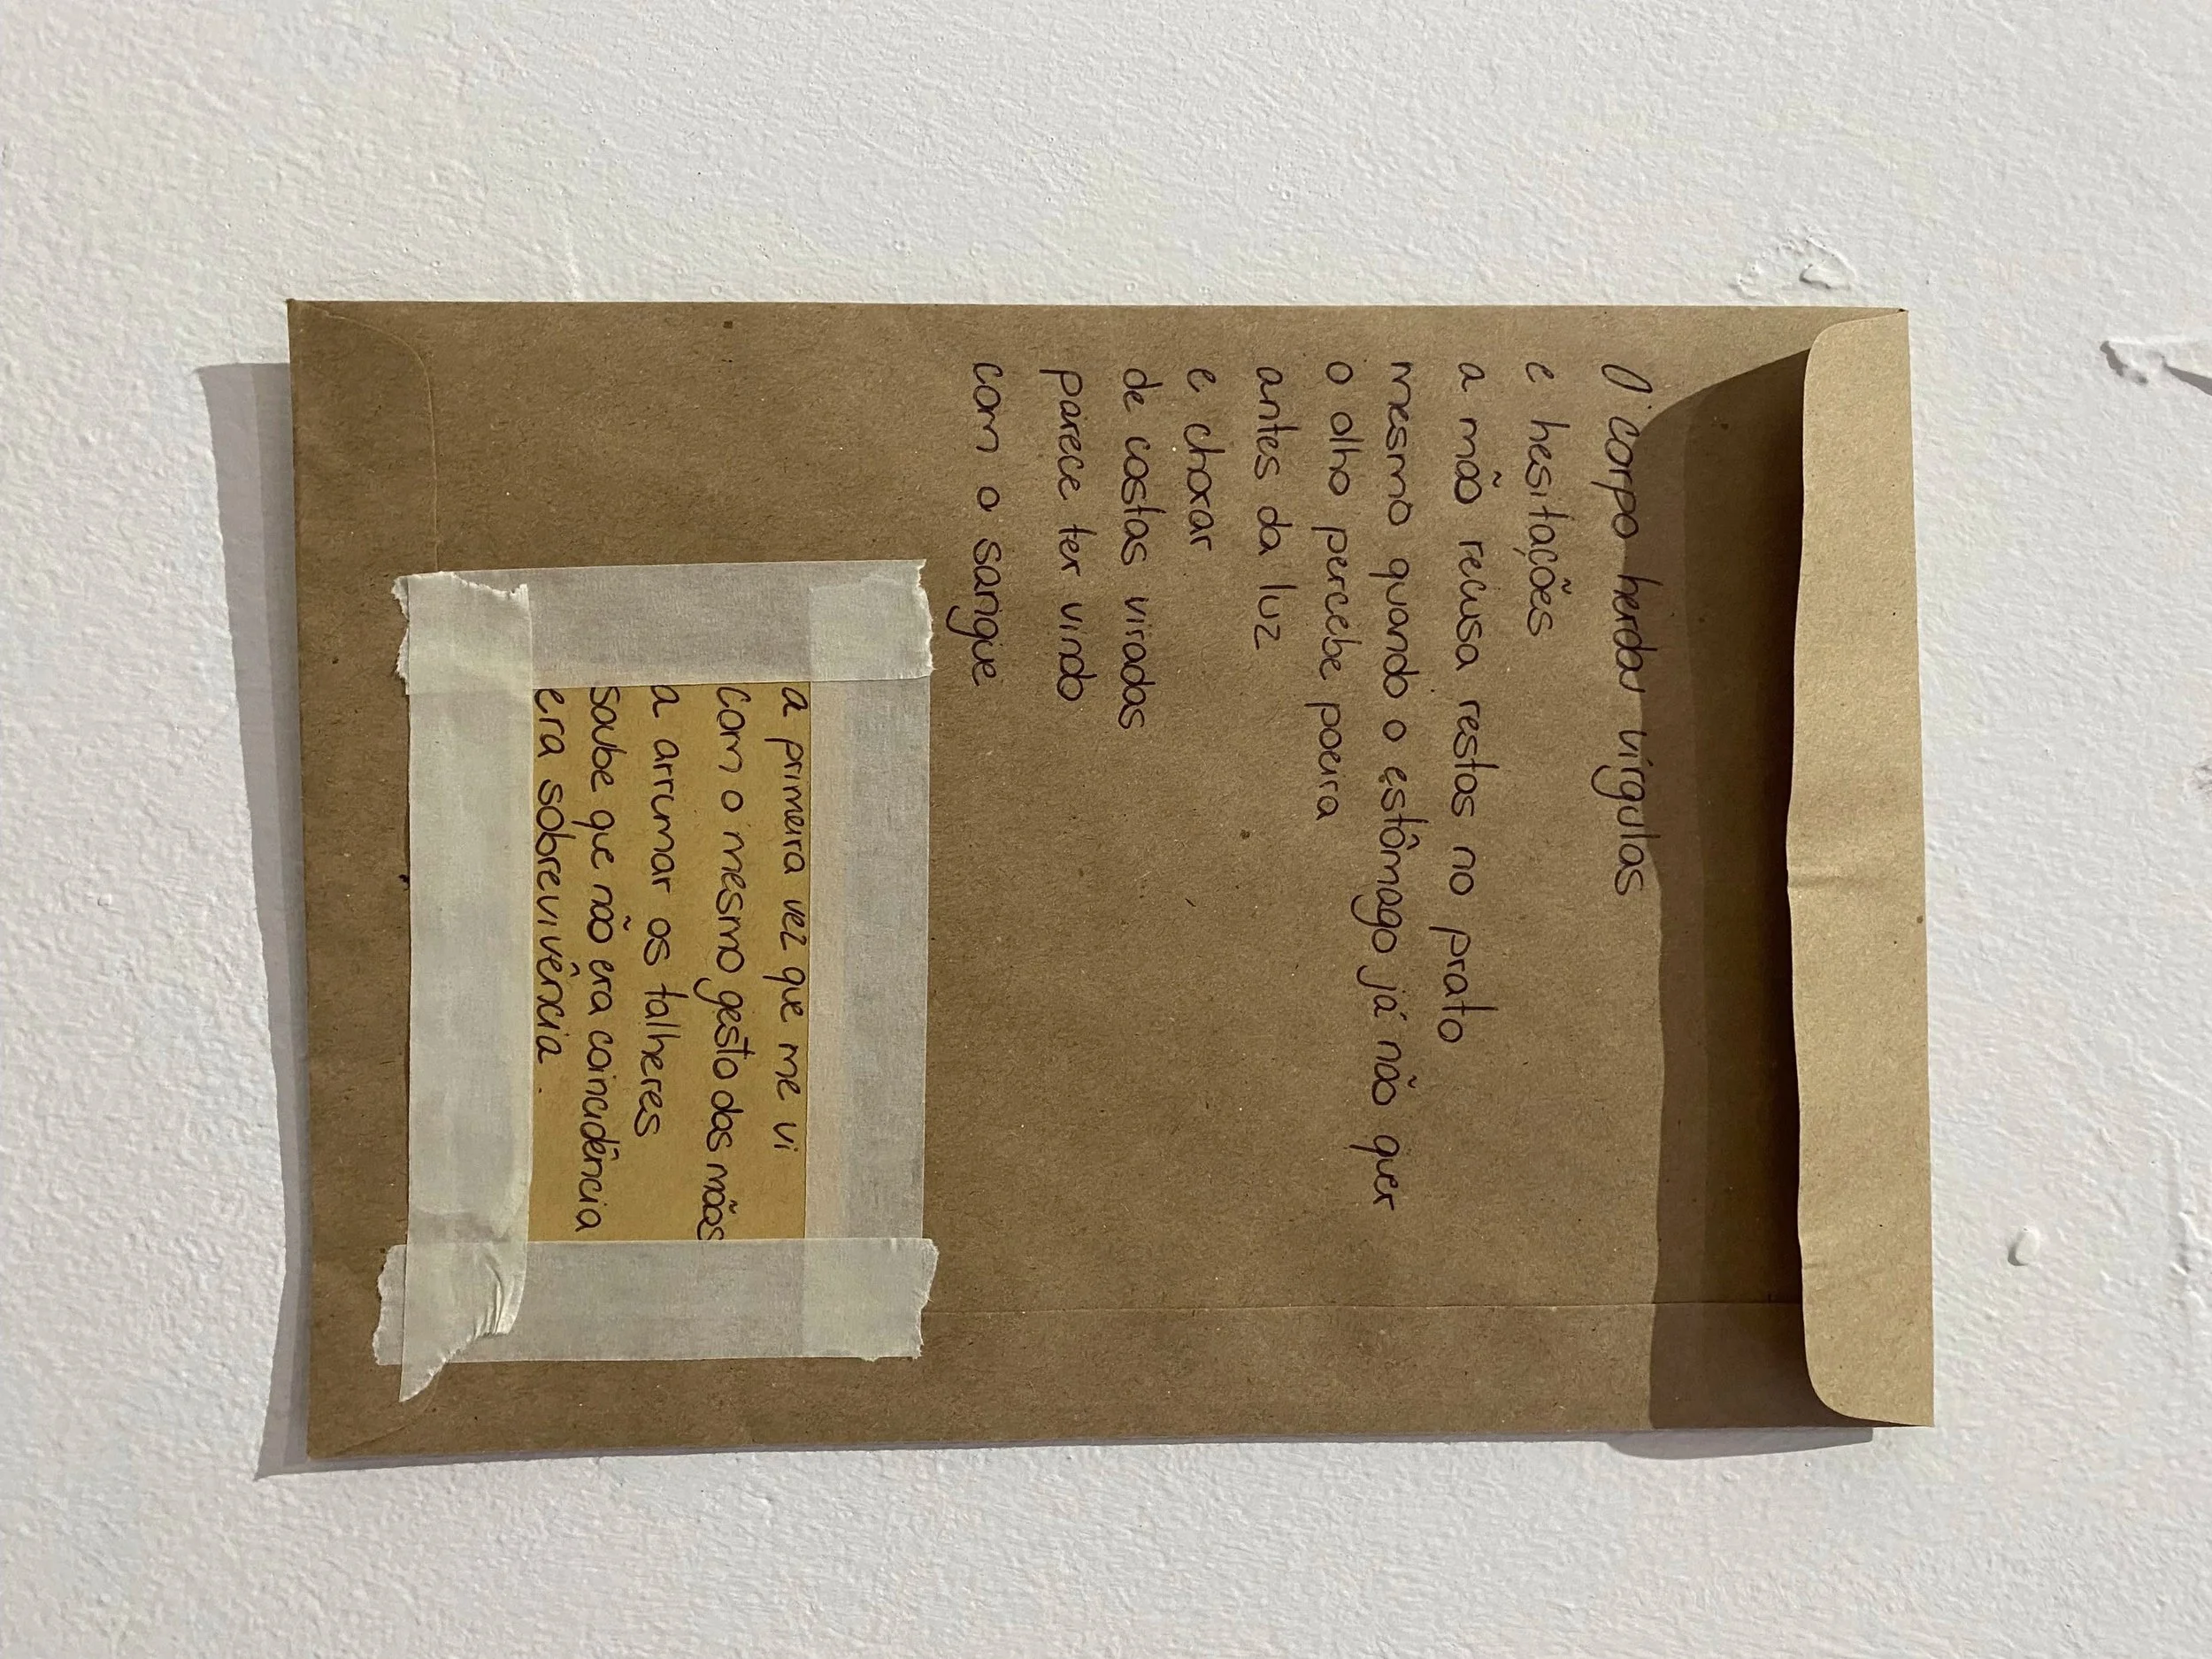 O corpo herdar vírgulas
e hesitações
a mão recusa restos no prato
mesmo quando o estômago já não quer
o olho percebe poeira
antes da luz
e chorar
de costas viradas
parece ter vindo
com o sangue
a primeira vez que me vi
com o mesmo gesto das mãos
a arrumar os talheres
soube que não era coincidência
era sobrevivência.